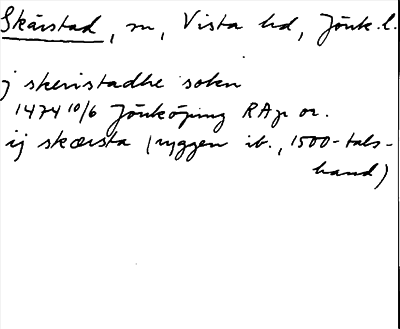 Skärstad, sn, Vista hd, Jönk. l.
j skeristadhe sokn
1474 10/6 Jönköping RAp or.
ij skærsta (ryggen ib., 1500-tals-
hand)